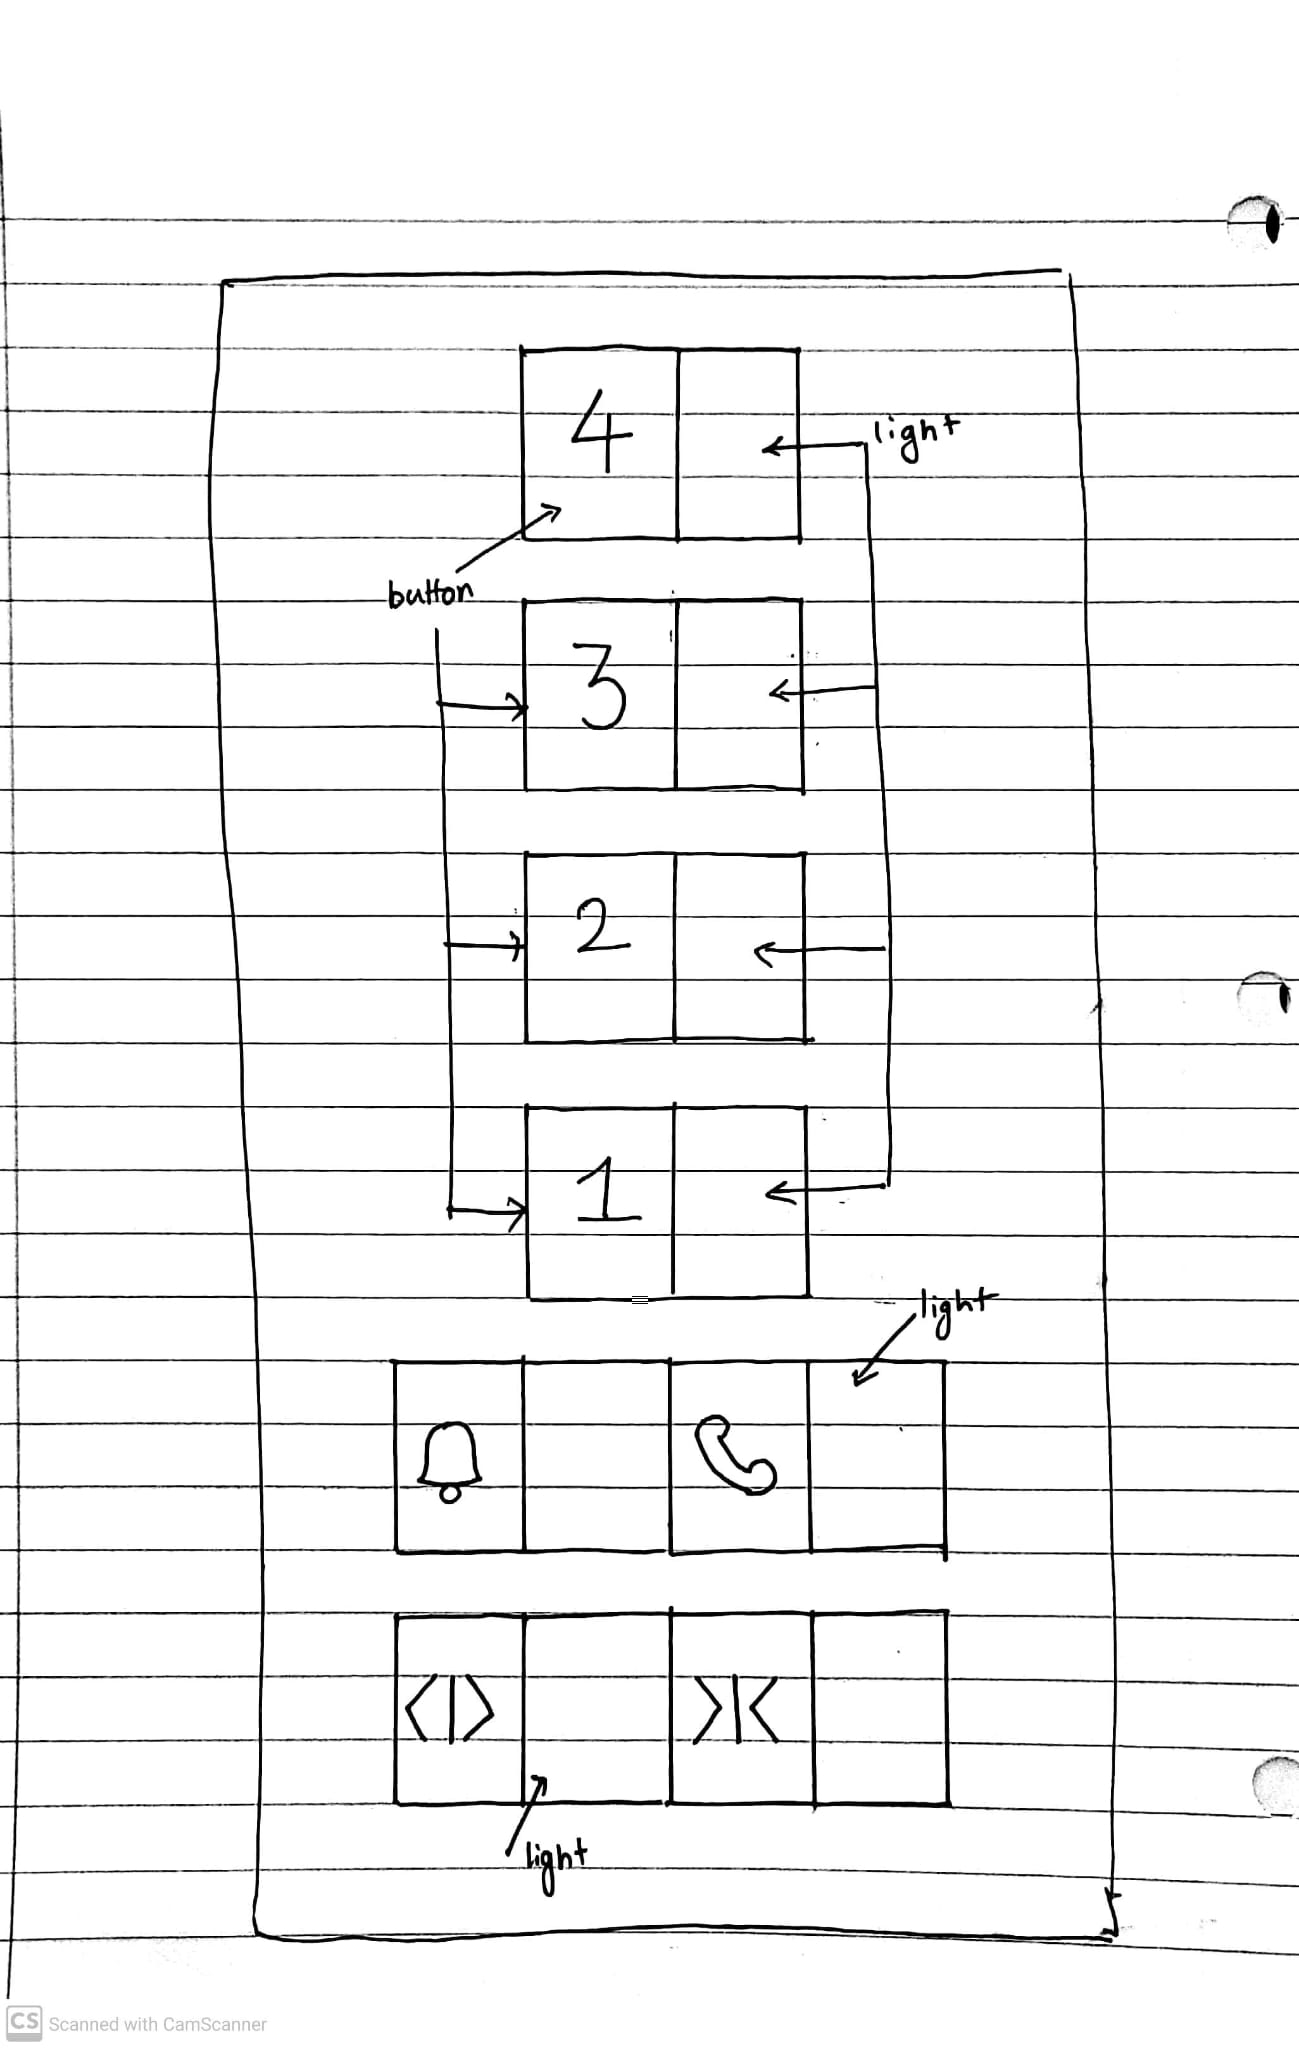 4
light
button
3
2
1
light
<|>
>|<
light
CS Scanned with CamScanner